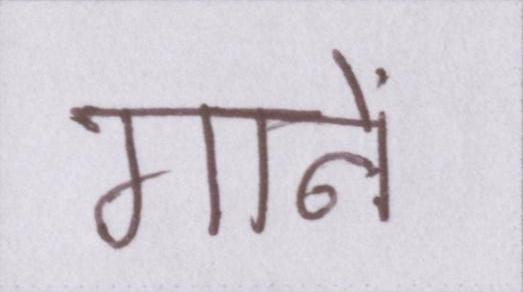 गानें